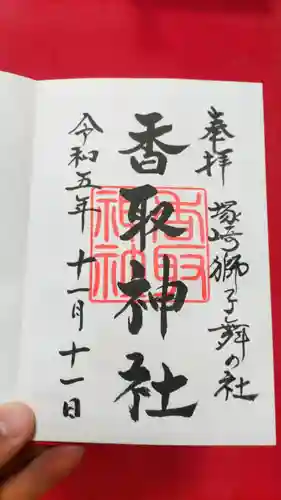 奉拝 塚崎獅子舞の社
香取神社
香取神社
令和五年 十一月 十一日